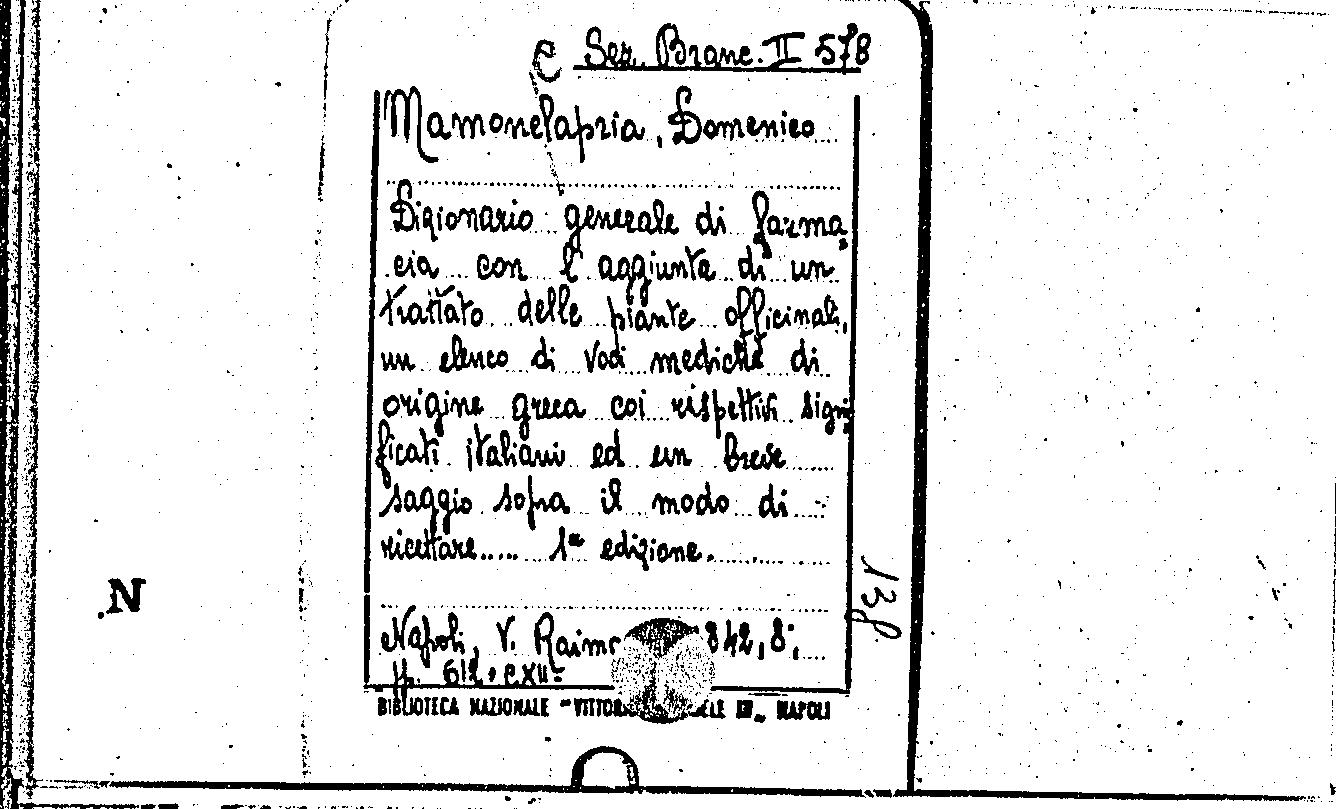 C Sez. Branc. II 578
Mamonelapria, Domenico
Dizionario generale di farma=
cia con l'aggiunta di un
trattato delle piante officinali,
un elenco di voci mediche di
origine greca coi rispettivi signi=
ficati italiani ed un breve
saggio sopra il modo di
ricettare..... 1ª edizione.
Napoli, V. Raimo 842, 8°,
pp. 612+CXII
BIBLIOTECA NAZIONALE "VITTOR ELE III" NAPOLI
N